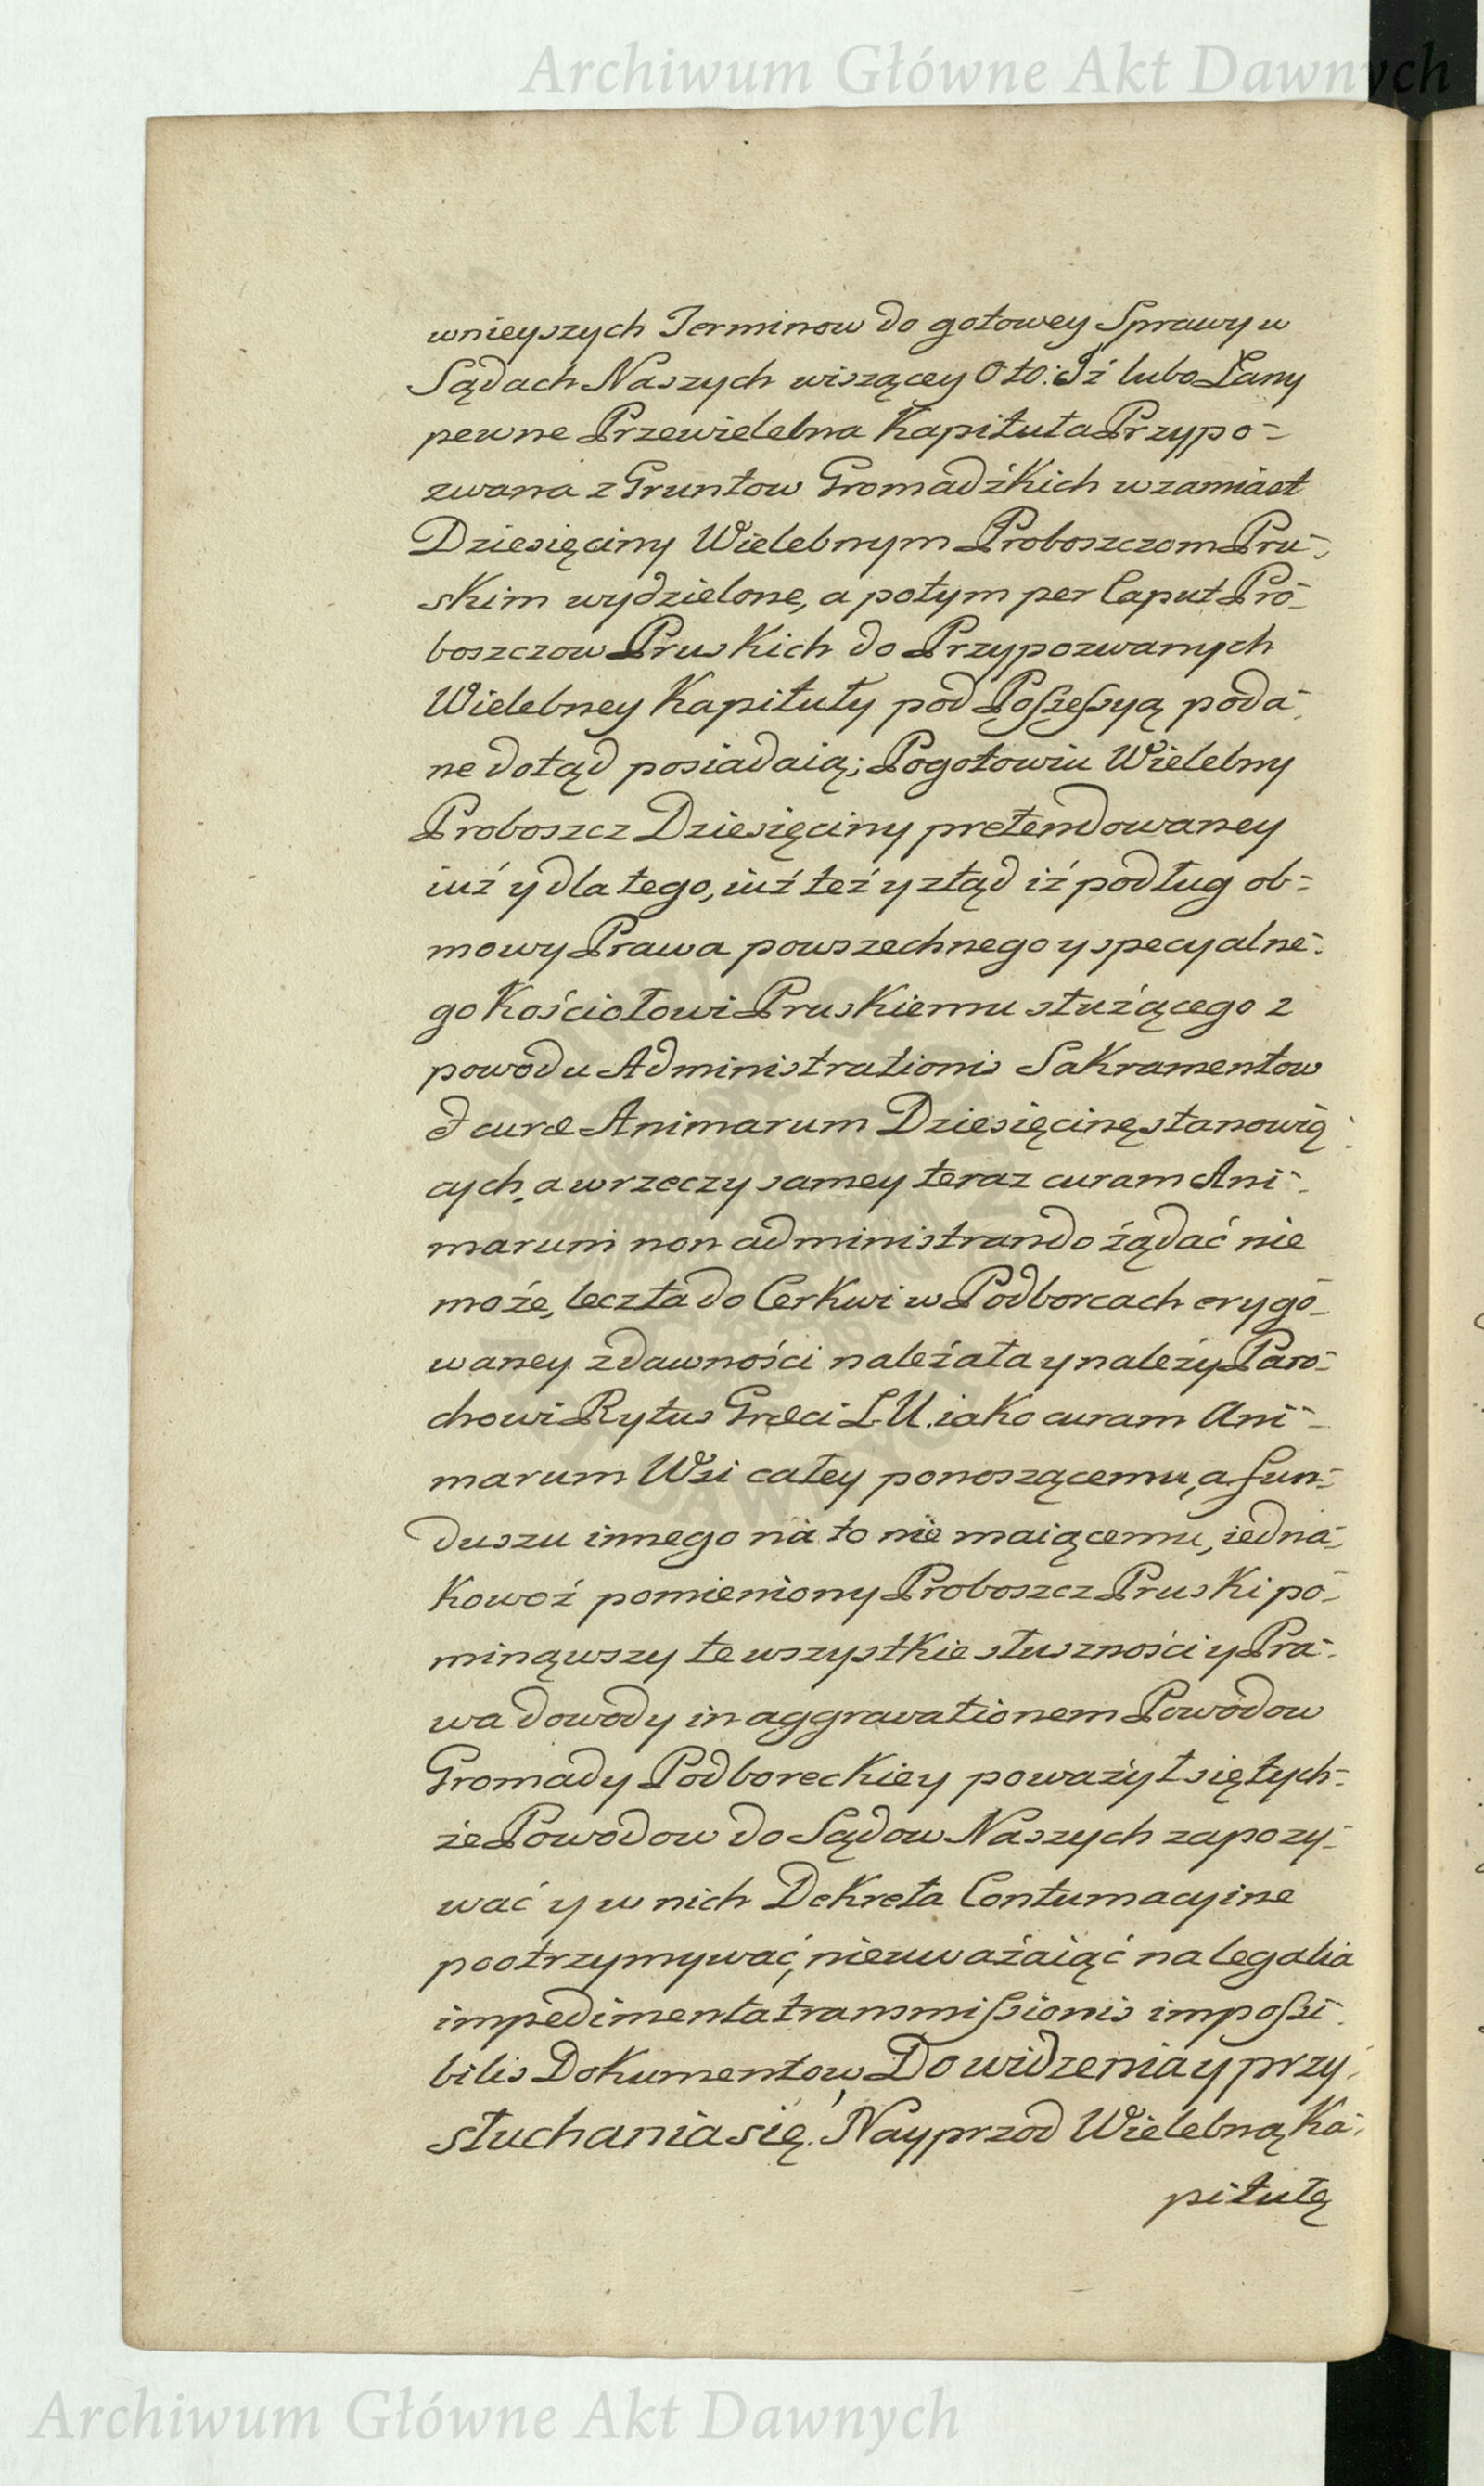 Archiwum Główne Akt Dawnych
wnieyszych Terminow do gotowey Sprawy w
Sądach Naszych wiszącey Oto: Iż lubo Łany
pewne Przewielebna Kapituła Przypo-
zwana z Gruntow Gromadźkich wzamiast
Dziesięciny Wielebnym Proboszczom Pru-
skim wydzielone, a potym per Caput Pro-
boszczow Pruskich do Przypozwanych
Wielebney Kapituły pod Possessyą poda-
ne dotąd posiadaią; Pogotowiu Wielebny
Proboszcz Dziesięciny pretendowaney
iuż y dla tego, iuż też y ztąd iż podług ob-
mowy Prawa powszechnego y specyalne-
go Kościołowi Pruskiemu służącego z
powodu Administrationis Sakramentow
et curæ Animarum Dziesięcinę stanowią-
cych, a w rzeczy samey teraz curam Ani-
marum non administrando żądać nie
może, lecz ta do Cerkwi w Podborcach erygo-
waney zdawności należała y należy Paro-
chowi Rytus Græci L. U. iako curam Ani-
marum Wsi całey ponoszącemu, a fun-
duszu innego na to nie maiącemu, iedna-
kowoż pomieniony Proboszcz Pruski po-
minąwszy te wszystkie słuszności y Pra-
wa dowody in aggravationem Powodow
Gromady Podboreckiey poważył się tych-
że Powodow do Sądow Naszych zapozy-
wać y w nich Dekreta Contumacyine
pootrzymywać, nieuważaiąć na legalia
impedimenta transmissionis impossi-
bilis Dokumentow, Do widzenia y przy-
słuchania się. Nayprzod Wielebną Ka-
pitułę
Archiwum Główne Akt Dawnych